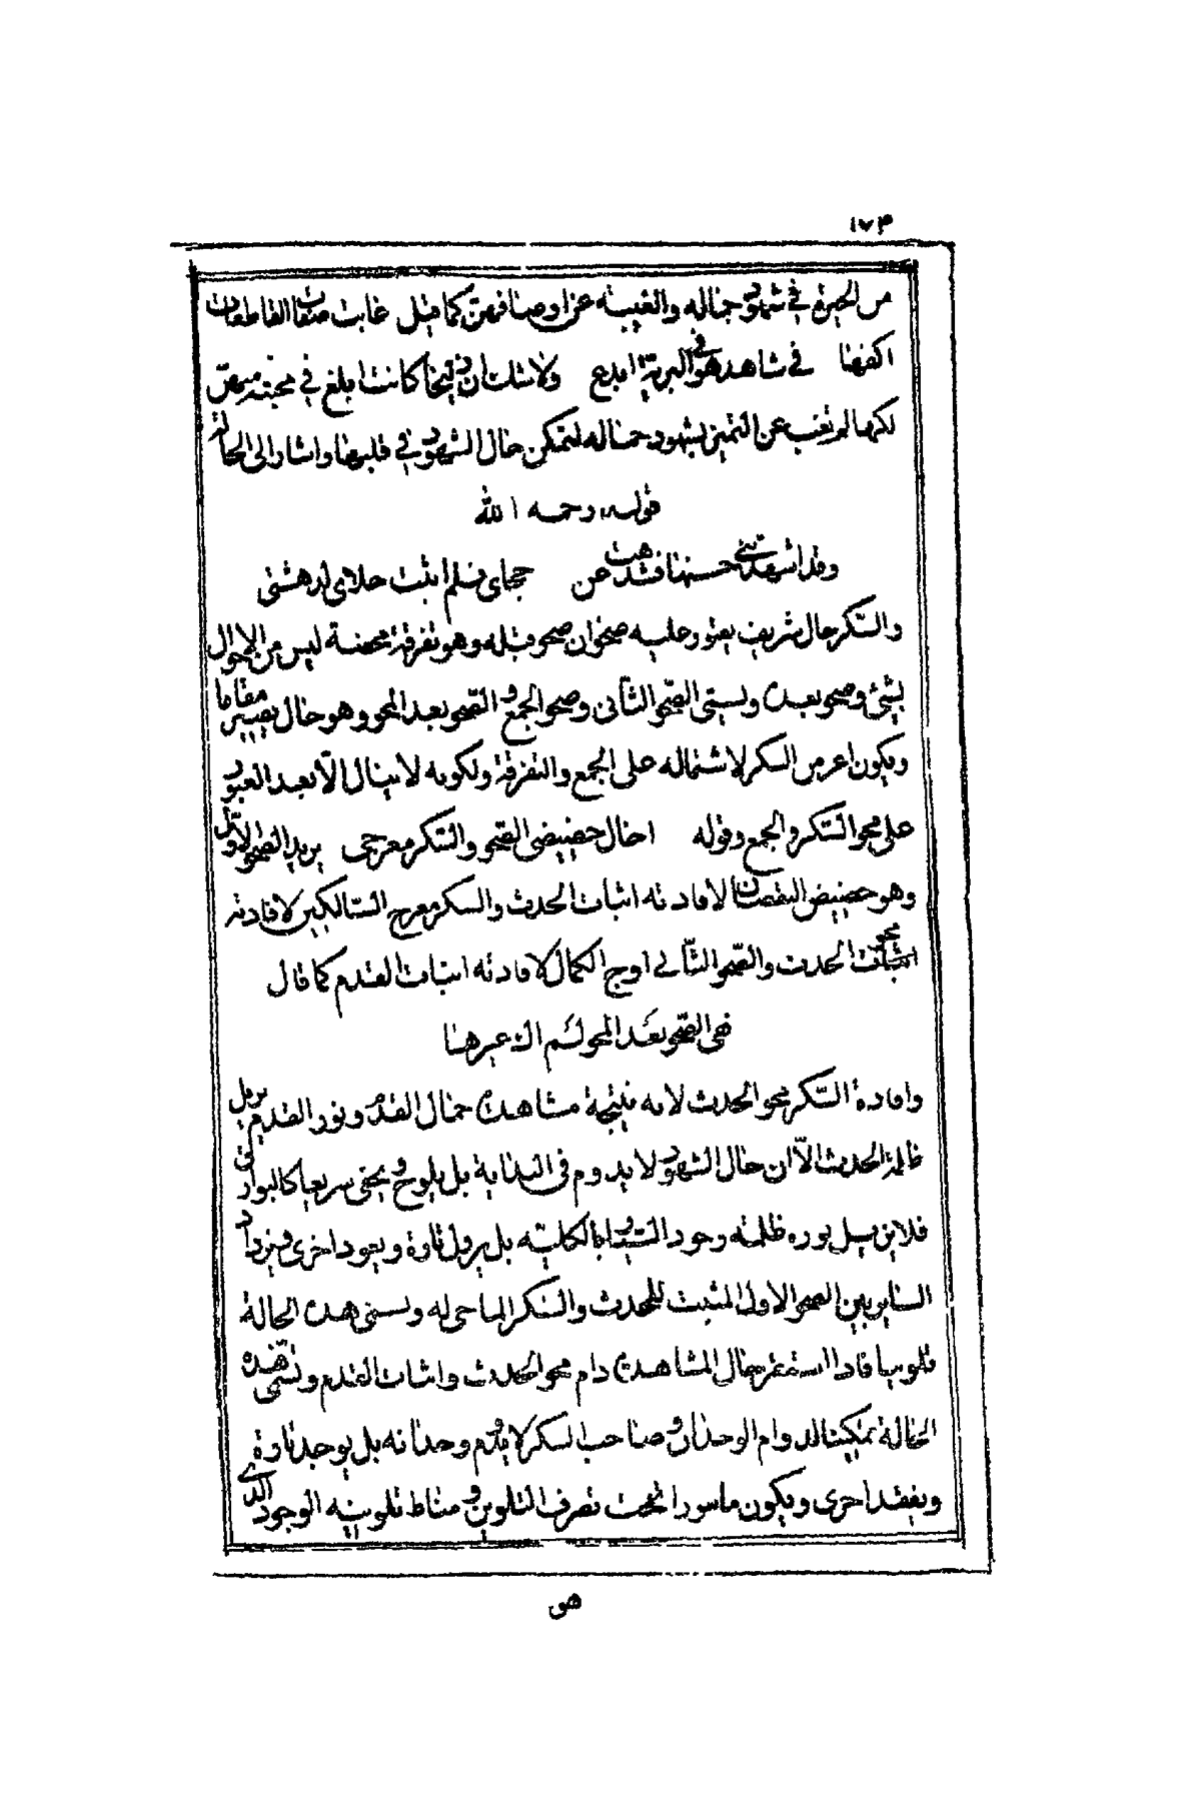 ١٧٤
من الحيرة في شهود جماله والغيبة عن اوصافهن كما قيل غابت صفات القاطعات
اكفها في شاهد هو في البرية ابدع ولاشك ان زليخا كانت ابلغ في محبته منهن
لكنها لم تغب عن التميز بشهود جماله لتمكن حال الشهود في قلبها واشار الى الحالة
قوله رحمه الله
وقد اشهدتني حسنها فشدهت عن حجاي فلم اثبت حلاي لدهشتي
والسّكر حال شريف يعتور عليه صحوان صحو قبله وهو تفرقة محضة ليس من الاحوال
بشئ وصحو بعده ويسمى الصّحو الثّانى وصحو الجمع والصّحو بعد المحو وهو حال يصير مقاما
ويكون اعز من السكر لاشتماله على الجمع والتفرقة ولكونه لا ينال الّا بعد العبور
على محو السّكر والجمع وقوله اخال حضيضى الصّحو والسّكر معرجى يريد الصّحو الاوّل
وهو حضيض النقصان لافادته اثبات الحدث والسكر معرج السّالكين لافادته
محو الحدث والصّحو الثّانى اوج الكمال لافادته اثبات القدم كما قال
ففى الصّحو بعد المحو لم اك غيرها
وافادة السّكر محو الحدث لانه نتيجة مشاهدة جمال القدم ونور القدم يزيل
ظلمة الحدث الّا ان حال الشهود لا يدوم فى البداية بل يلوح ويخفى سريعا كالبوارق
فلا يزيل نوره ظلمته وجود بالكليّه بل يزول تارة ويعود اخرى ويتردد
بين الصحو الاول المثبت للحدث والسّكر الماحى له ويسمى هذه الحالة
تلوينا فاذا استقر حال المشاهدة دام محو الحدث واثبات القدم وتسمّى هذه
الحالة تمكينا لدوام الوجدان وصاحب السكر لا يدوم وجدانه بل يوجد تارة
ويفقد اخرى ويكون ماسورا تحت تصرف التلوين ومناط تلوينه الوجود الذى
هى